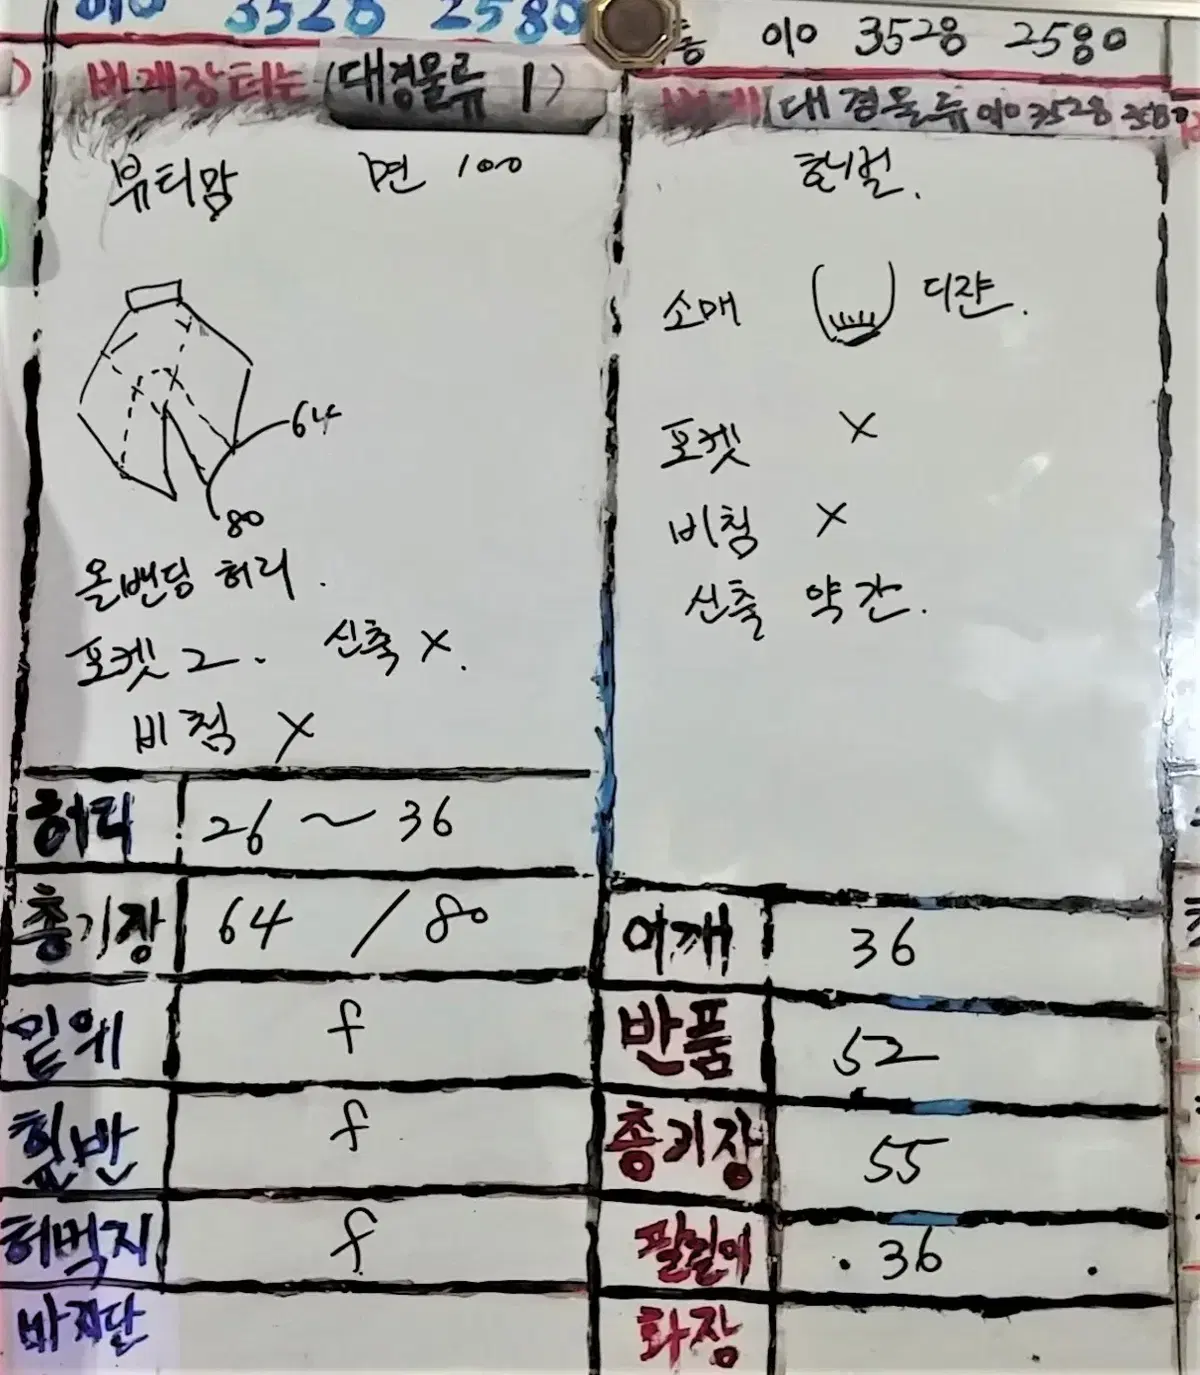 010 3528 2580
010 3528 2580
번개장터는 (대경물류 1)
번개 (대경물류 010 3528 2580
뷰티맘 면 100
64
80
올밴딩 허리.
포켓 2. 신축 X.
비침 X
허리 26 ~ 36
총기장 64 / 80
밑위 f
힙반 f
허벅지 f
바지단
허니벌.
소매 디쟌.
포켓 X
비침 X
신축 약간.
어깨 36
반품 52
총기장 55
팔길이 . 36 .
화장